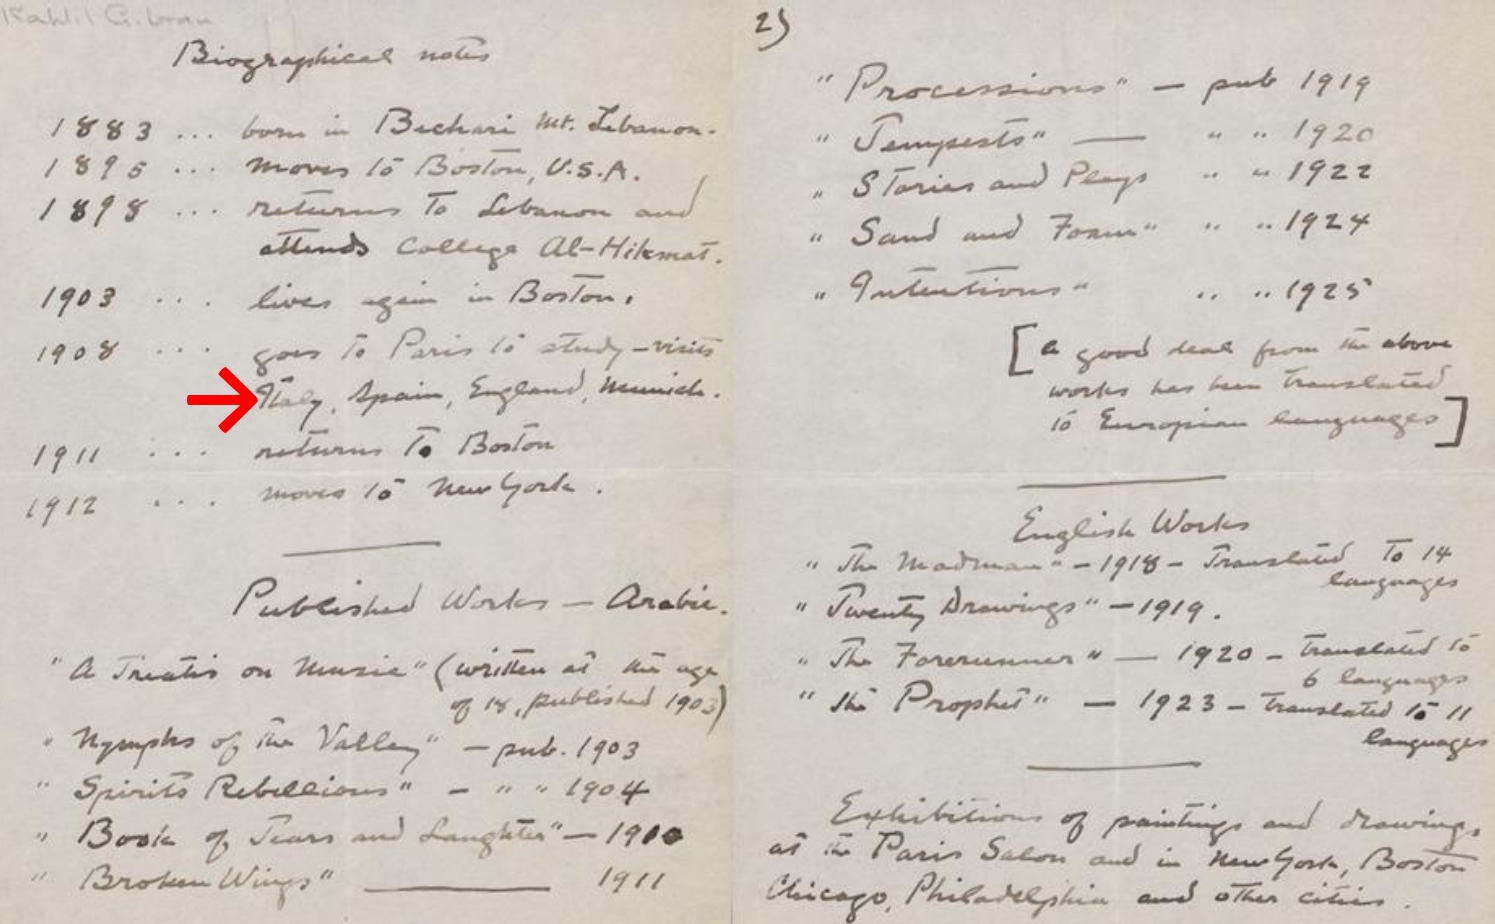 Kahlil Gibran
Biographical notes
1883 ... born in Bechari Mt. Lebanon.
1895 ... moves to Boston, U.S.A.
1898 ... returns to Lebanon and
attends College Al-Hikmat.
1903 ... lives again in Boston.
1908 ... goes to Paris to study – visits
Italy, Spain, England, Munich.
1911 ... returns to Boston
1912 ... moves to New York.
Published Works – Arabic.
"A Treatis on Music" (written at the age
of 18, published 1903)
"Nymphs of the Valley" – pub. 1903
"Spirits Rebellious" – " " 1904
"Book of Tears and Laughter" – 1910
"Broken Wings" — 1911
2)
"Processions" – pub 1919
"Tempests" — " " 1920
"Stories and Plays " " 1922
"Sand and Foam" " " 1924
"Intentions" " " 1925
[a good deal from the above
works has been translated
to European languages]
English Works
"The Madman" – 1918 – Translated to 14
languages
"Twenty Drawings" – 1919.
"The Forerunner" — 1920 – translated to
6 languages
"The Prophet" — 1923 – translated to 11
languages
Exhibitions of paintings and drawings
at the Paris Salon and in New York, Boston
Chicago, Philadelphia and other cities.